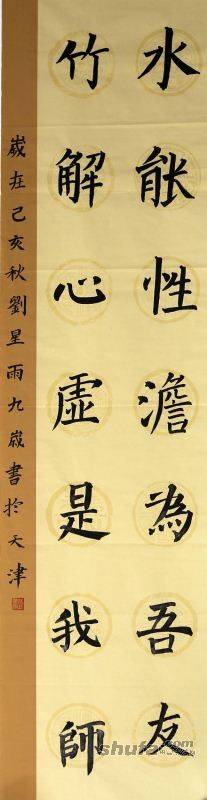 水能性澹為吾友
竹解心虛是我師
歲在己亥秋劉星雨九歲書於天津